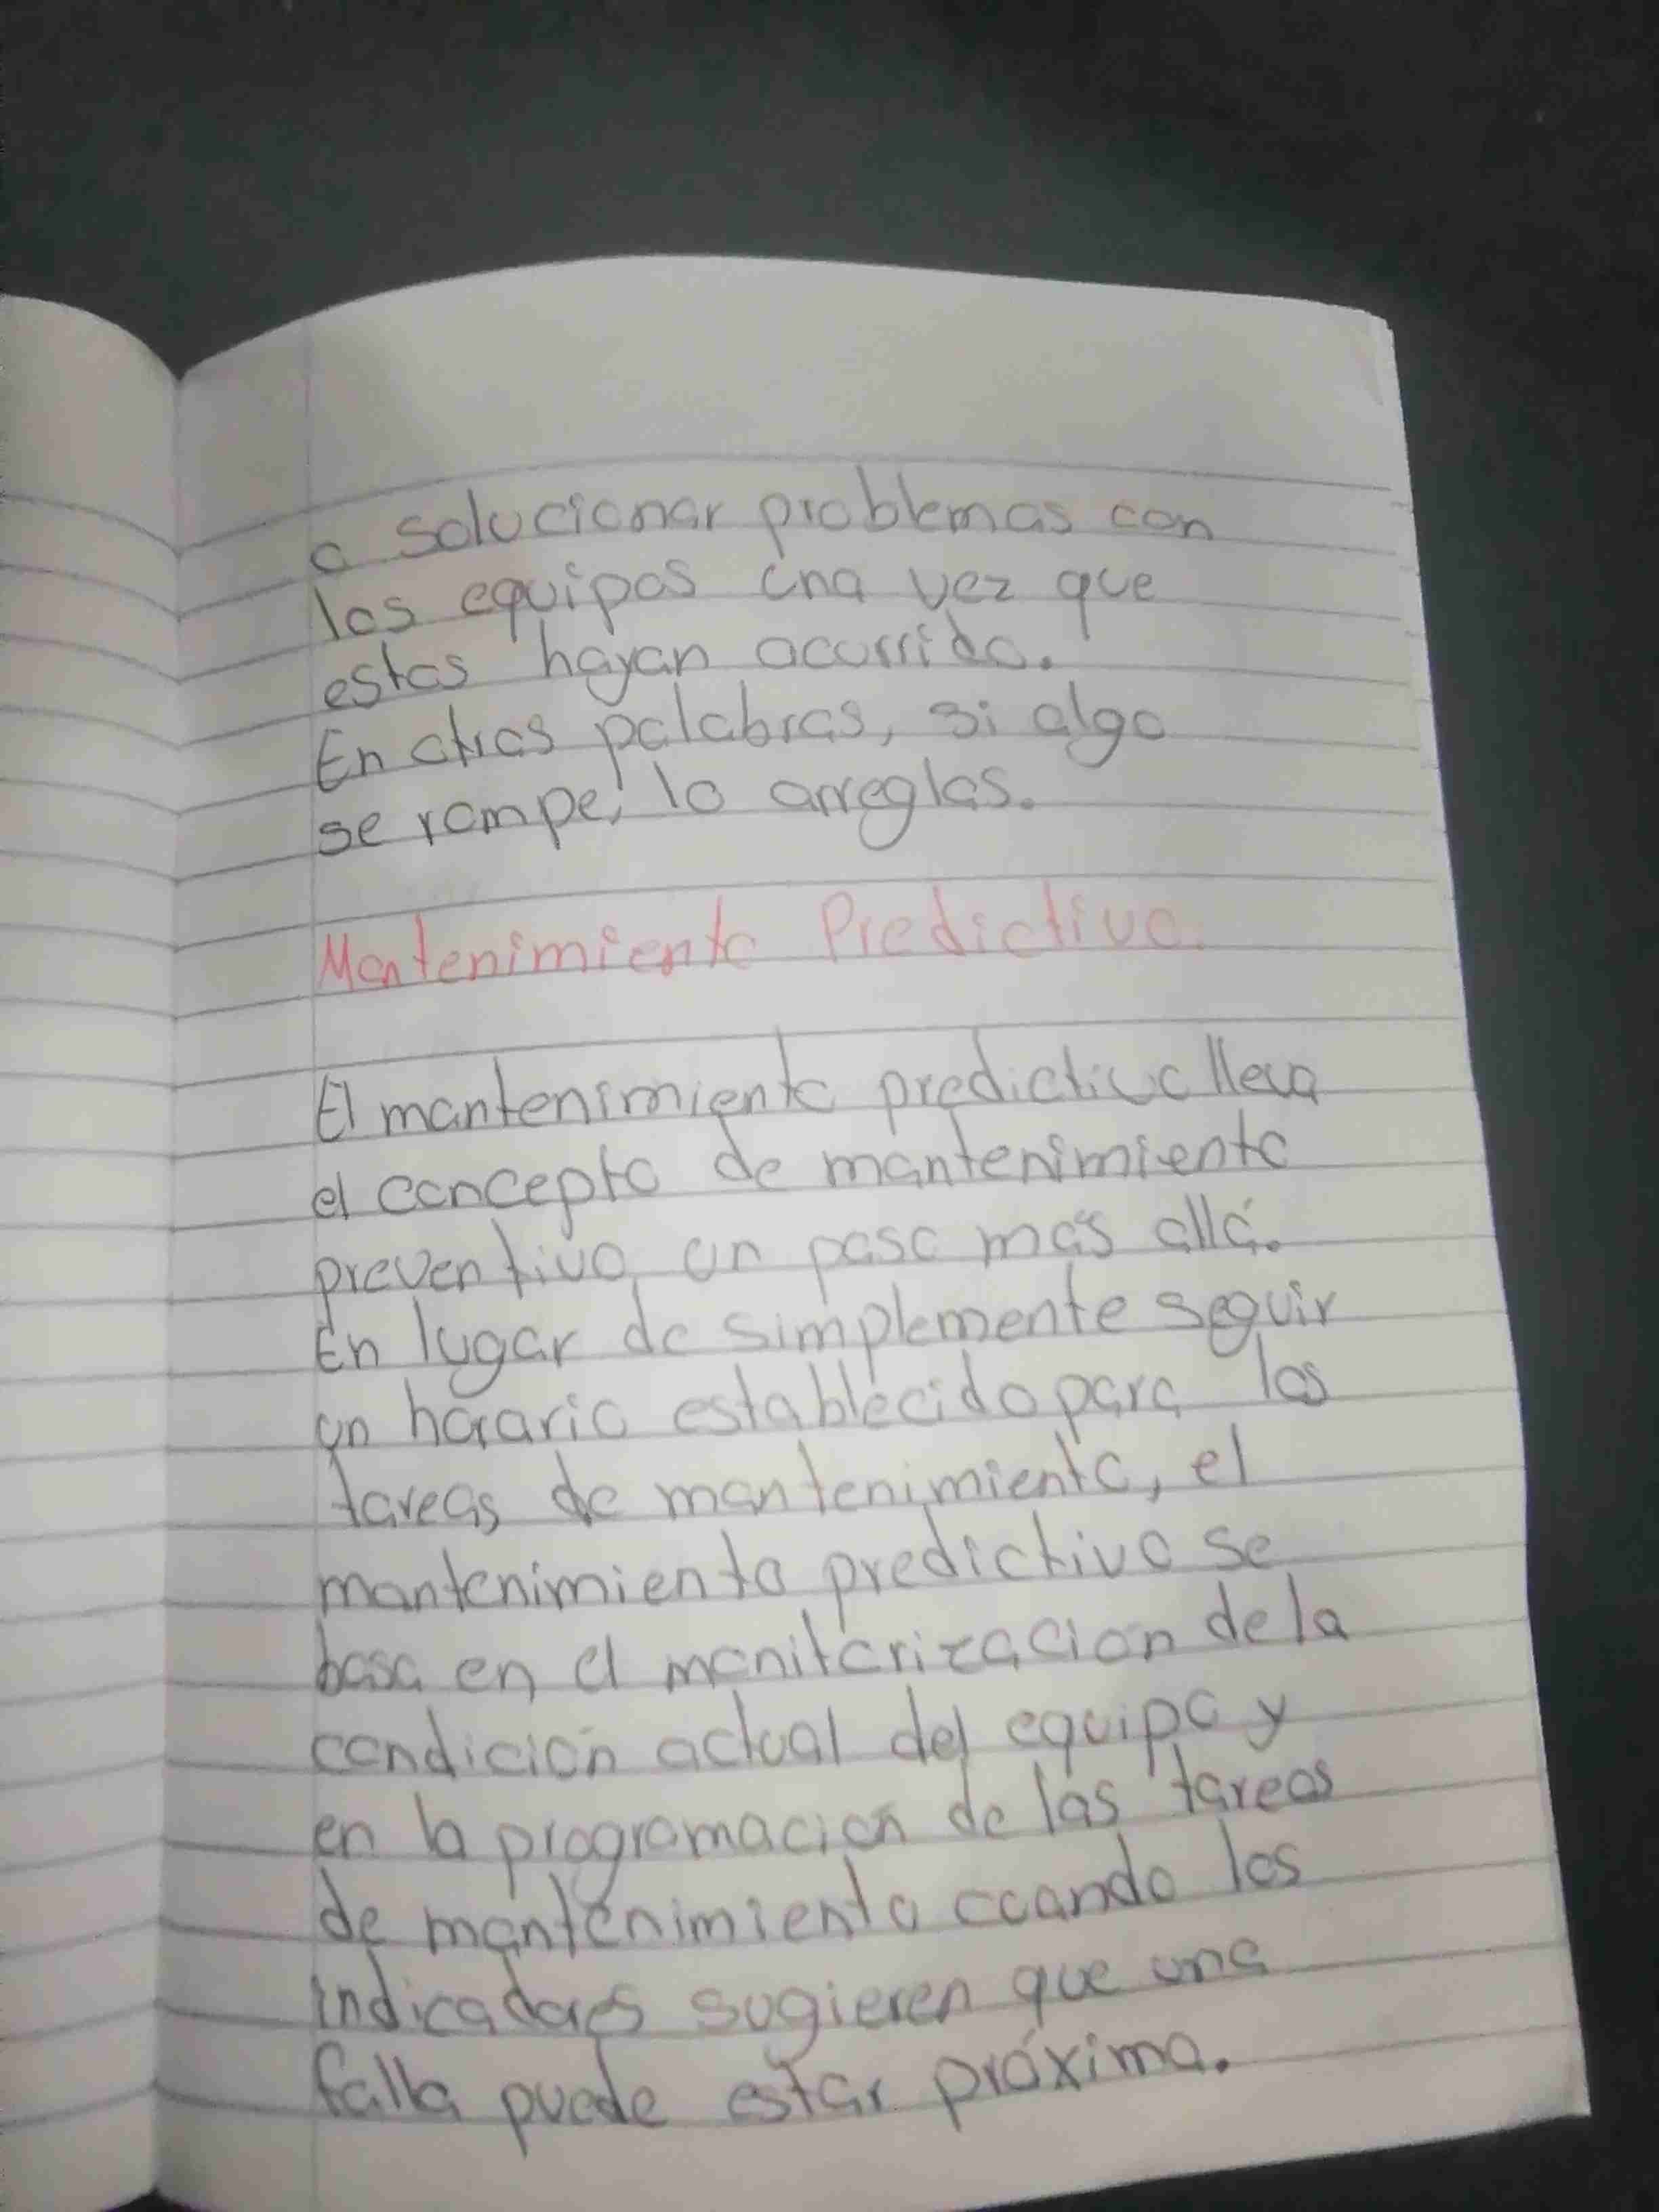 a solucionar problemas con
los equipos una vez que
estos hayan ocurrido.
En otras palabras, si algo
se rompe, lo arreglas.
Mantenimiento Predictivo.
El mantenimiento predictivo lleva
el concepto de mantenimiento
preventivo un paso más allá.
En lugar de simplemente seguir
un horario establecido para las
tareas de mantenimiento, el
mantenimiento predictivo se
basa en el monitorización de la
condición actual del equipo y
en la programación de las tareas
de mantenimiento cuando los
indicadores sugieren que una
falla puede estar próxima.